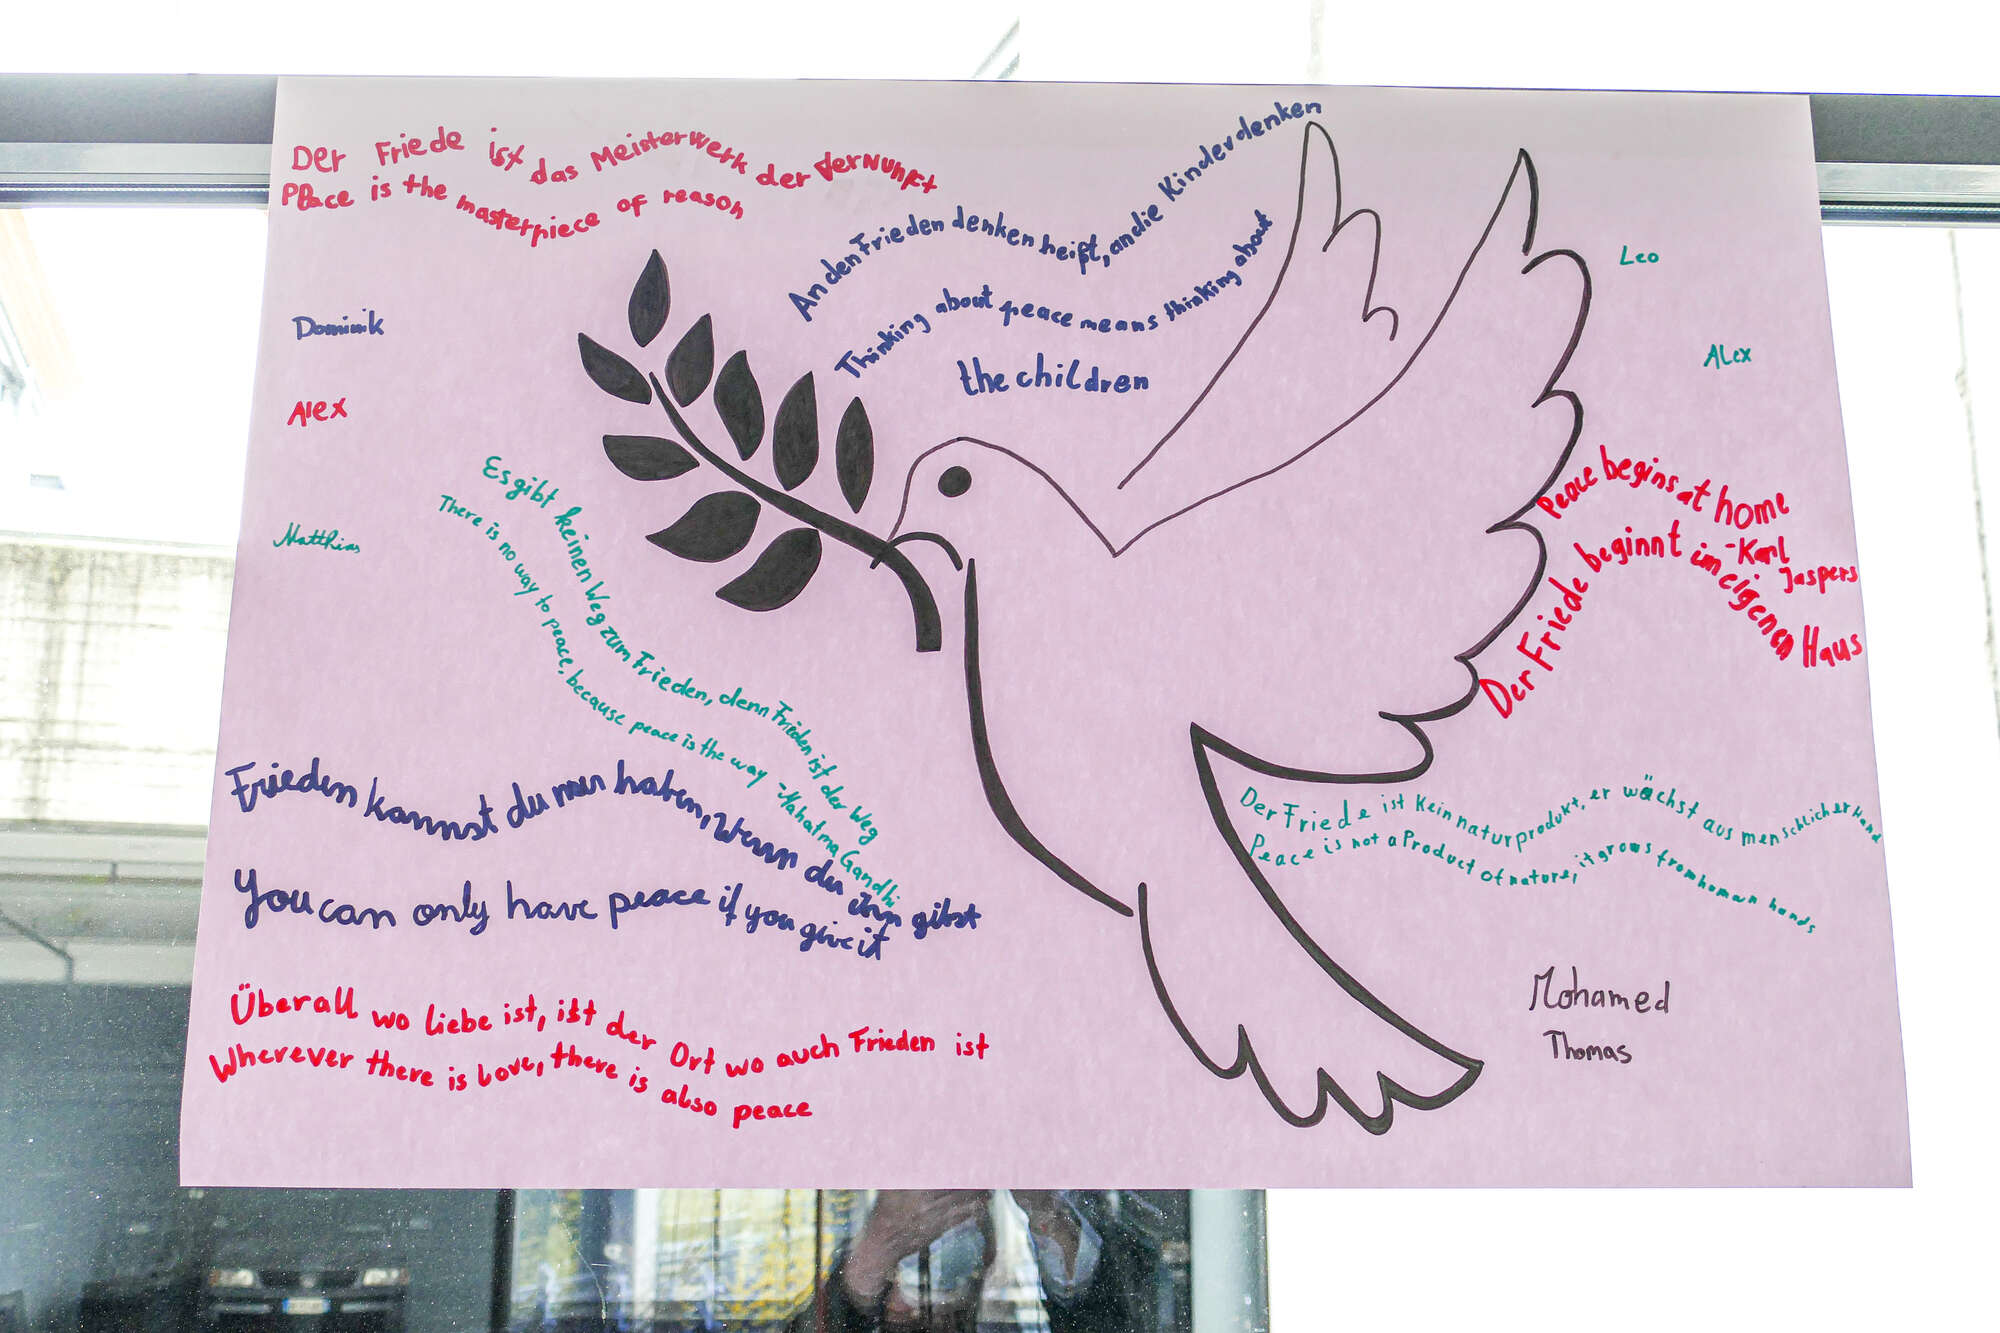 Der Friede ist das Meisterwerk der Vernunft
Peace is the masterpiece of reason
An den Frieden denken heißt, an die Kinder denken
Thinking about peace means thinking about
the children
Leo
Dominik
Alex
Alex
Matthias
Es gibt keinen Weg zum Frieden, denn Frieden ist der Weg
There is no way to peace, because peace is the way -Mahatma Gandhi
Peace begins at home
-Karl
Jaspers
Der Friede beginnt im eigenen Haus
Frieden kannst du nur haben, wenn du ihn gibst
You can only have peace if you give it
Der Friede ist Kein naturprodukt, er wächst aus menschlicher Hand
Peace is not a Product of nature, it grows from human hands
Überall wo liebe ist, ist der Ort wo auch Frieden ist
Wherever there is love, there is also peace
Mohamed
Thomas